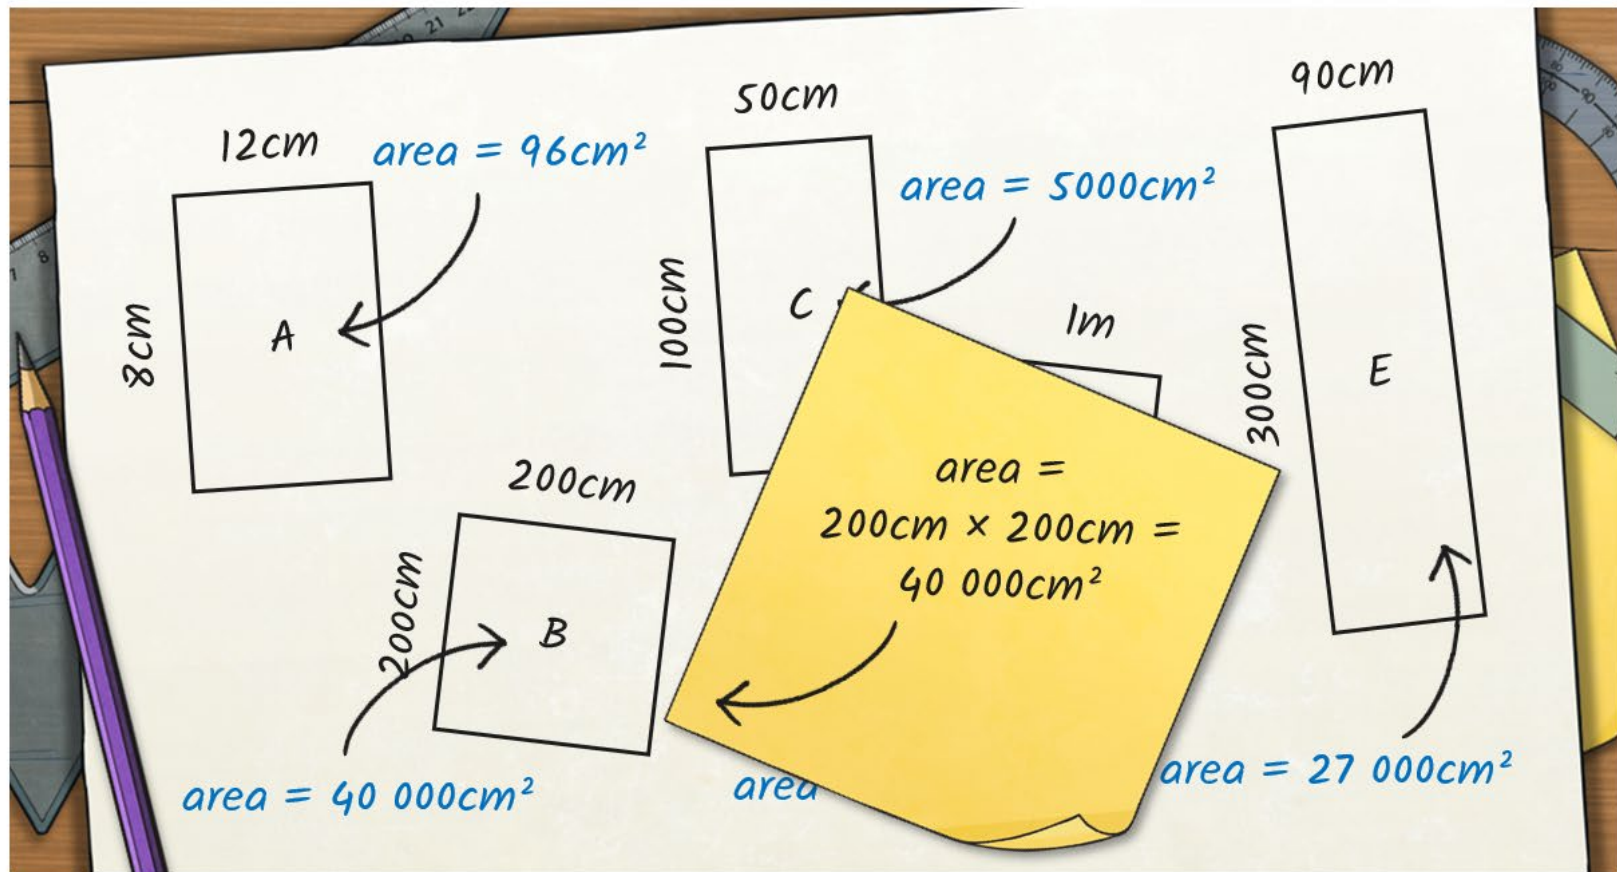 12cm
area = 96cm²
8cm
A
50cm
area = 5000cm²
100cm
C
1m
90cm
300cm
E
200cm
200cm
B
area =
200cm × 200cm =
40 000cm²
area = 40 000cm²
area
area = 27 000cm²
21
8
7